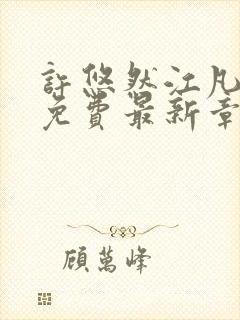 許悠然江凡
免費最新章
顧萬峰